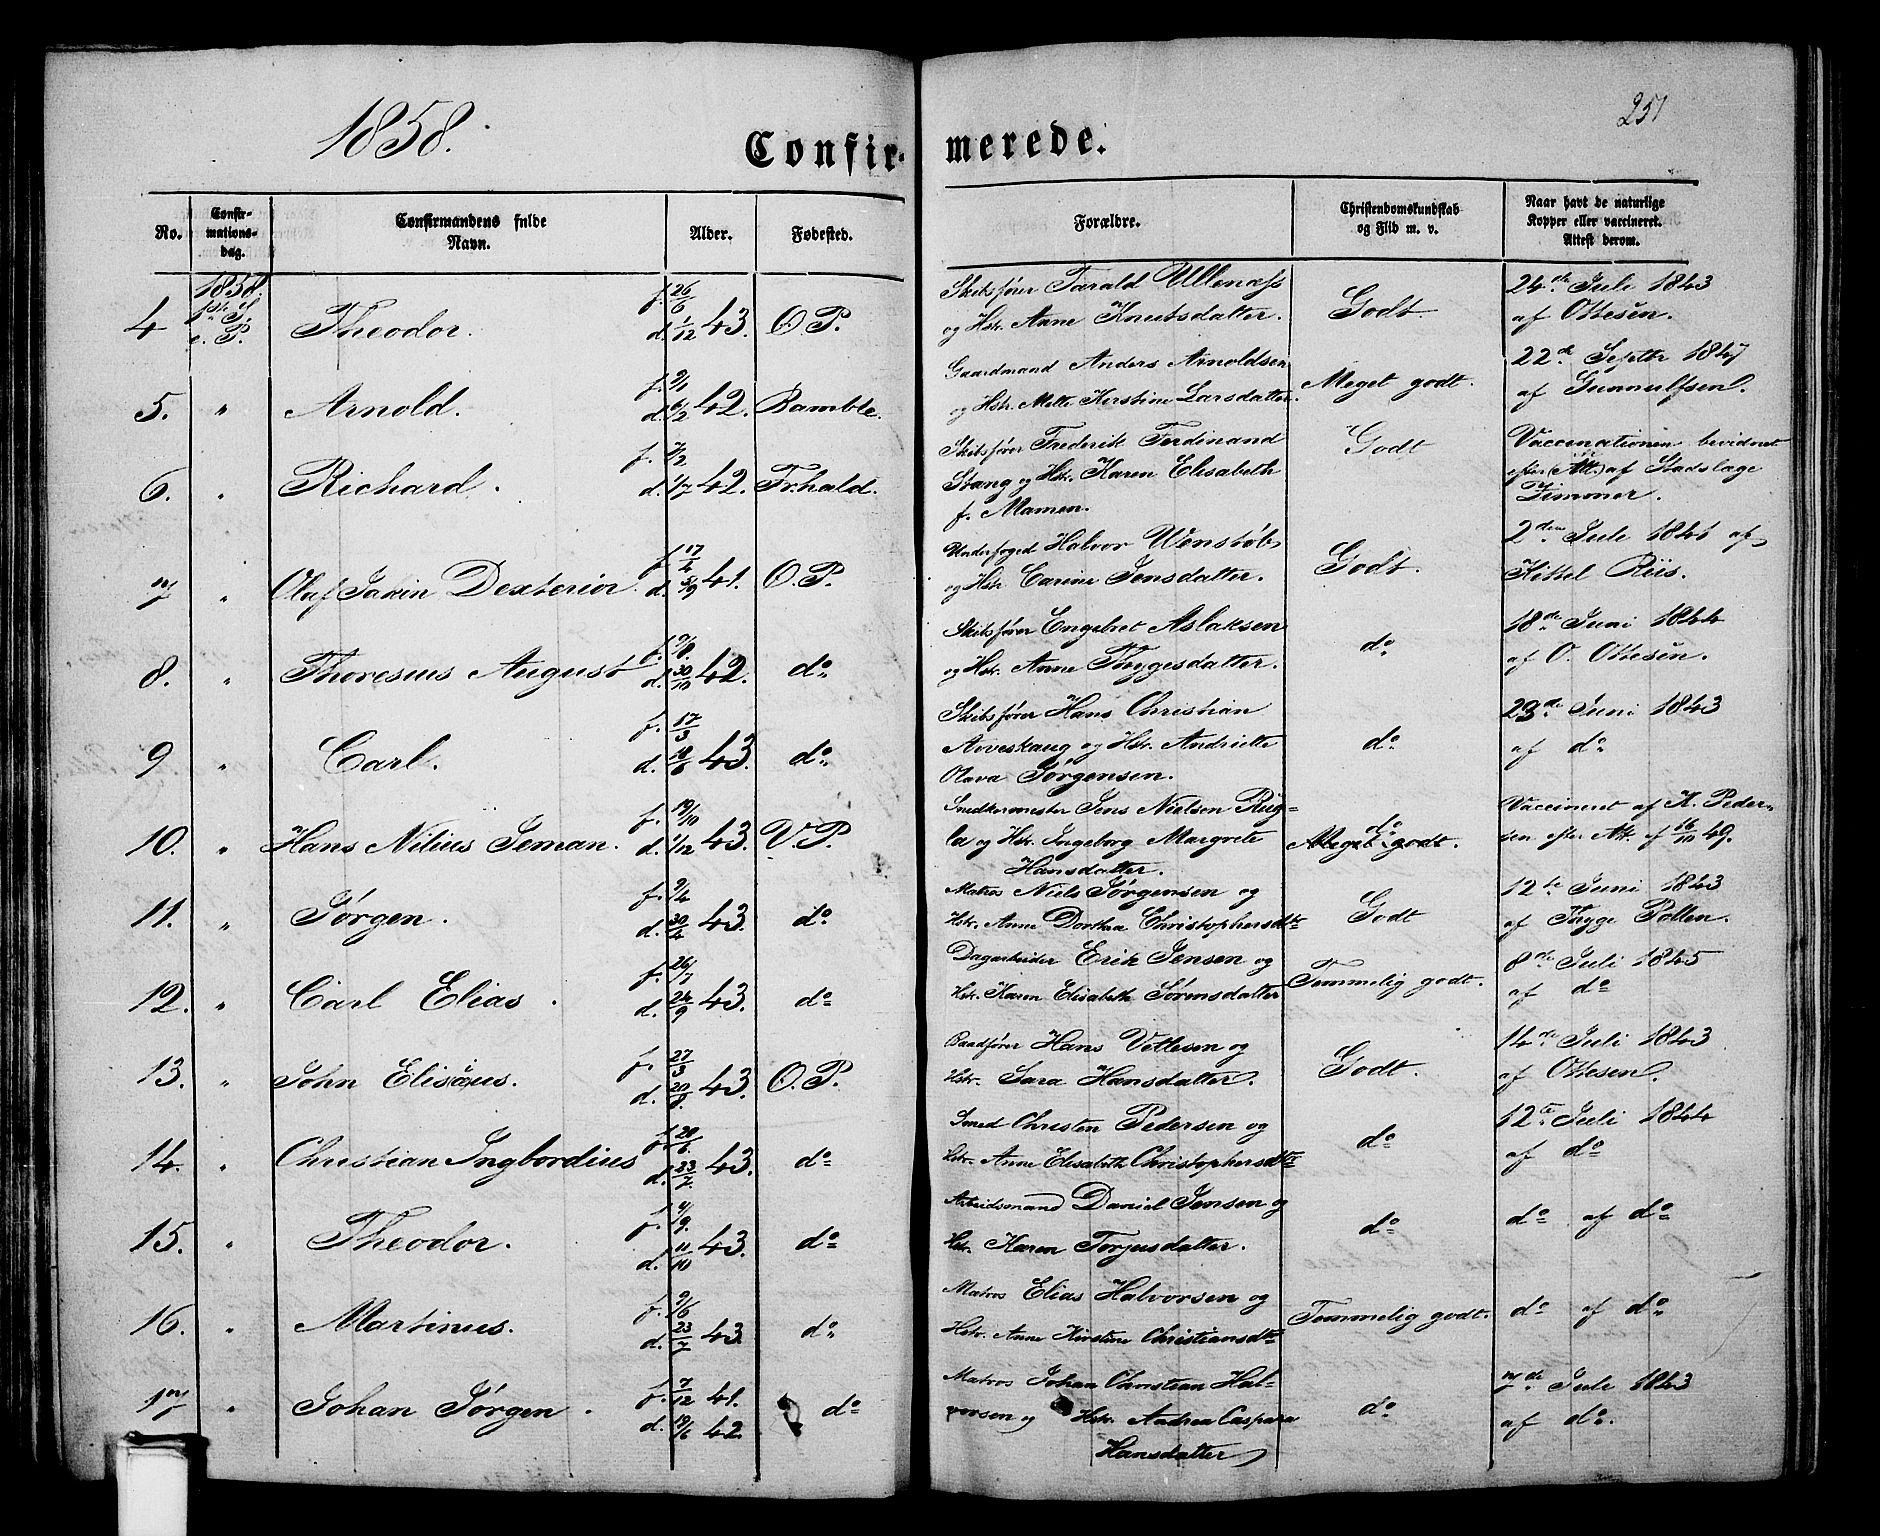 1858.
251
Confir-merede.
No.
Confir-
mations-
dag.
Confirmandens fulde
Navn.
Alder.
Fødested.
Forældre.
Christendomskundskab
og Flid m. v.
Naar havt de naturlige
Kopper eller vaccineret.
Attest derom.
1858.
4 Theodor. f. 26/6 d. 1/12 43. O. P.
Skibsfører Tarald Ullenæss
og Hstr. Anne Knutsdatter.
Godt
24de Juli 1843
af Ottesen.
5. " Arnold. f. 9/1 d. 6/2 42. Bamble.
Gaardmand Anders Arnoldsen
og Hstr. Mette Kirstine Larsdatter.
Meget godt.
22de Septbr 1847
af Gunnulfsen.
6. " Richard. f. 7/2 d. 1/7 42. Fr.hald.
Skibsfører Frederik Ferdinand
Stang og Hstr. Karen Elisabeth
f. Mamen.
Godt
Vaccinationen bevidnet
efter (Att.) af Stadslæge
Timmer.
7 " Olaf Dexterior. f. 17/4 d. 5/9 41. O. P.
Underfoged Halvor Wenstøb
og Hstr Carine Jensdatter.
Godt.
2den Juli 1841 af
Kittel Riis.
8. " Thoresius August f. 9/8 d. 30/10 42. do
Skibsfører Engebret Aslaksen
og Hstr. Anne Thygesdatter.
do
18de Juni 1844
af O. Ottesen.
9 " Carl. f. 17/3 d. 18/6 43. do
Skibsfører Hans Christian
Aaveskaug og Hstr. Andriette
Olava Jørgensen.
do
23de Juni 1843
af do
10. " Hans Nilius Seman. f. 19/10 d. 1/12 43. V. P.
Snedkermester Jens Nielsen Rug-
la og Hstr. Ingeborg Margrete
Hansdatter.
do
Meget godt.
Vaccineret af K. Peder-
sen efter Att. af 16/10 49.
11. " Jørgen. f. 9/4 d. 30/4 43. do
Matros Niels Jørgensen og
Hstr. Anne Dorthea Christophersdtr
Godt
12te Juni 1843
af Thyge Pollen.
12. " Carl Elias. f. 26/7 d. 24/9 43. do
Dagarbeider Erik Jensen og
Hstr. Karen Elisabeth Sørensdatter
Temmelig godt.
8de Juli 1845
af do
13. " John Elisæus. f. 27/3 d. 20/8 43. O. P.
Baadfører Hans Vetlesen og
Hstr. Sara Hansdatter.
Godt.
14de Juli 1843
af Ottesen.
14. " Christian Ingbordius f. 28/6 d. 23/7 43. do
Smed Christen Pedersen og
Hstr. Anne Elisabeth Christophersdtr
do
12te Juli 1844
af do
15. " Theodor. f. 4/9 d. 11/10 43. do
Arbeidsmand Daniel Jensen og
Hstr. Karen Torjusdatter.
do
do af do
16. " Martinius. f. 9/6 d. 23/7 43. do
Matros Elias Halvorsen og
Hstr. Anne Kirstine Christiansdtr
Temmelig godt.
do af do
17 " Johan Jørgen. f. 7/12 41. d. 19/6 42. do
Matros Johan Christian Hal-
vorsen og Hstr. Andrea Caspara
Hansdatter
do
7de Juli 1843
af do.